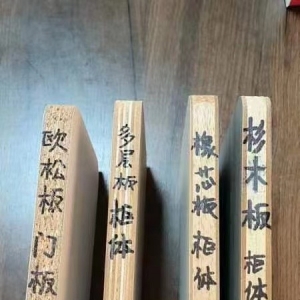 欧松板门板
多层板柜体
橡芯板柜体
杉木板柜体